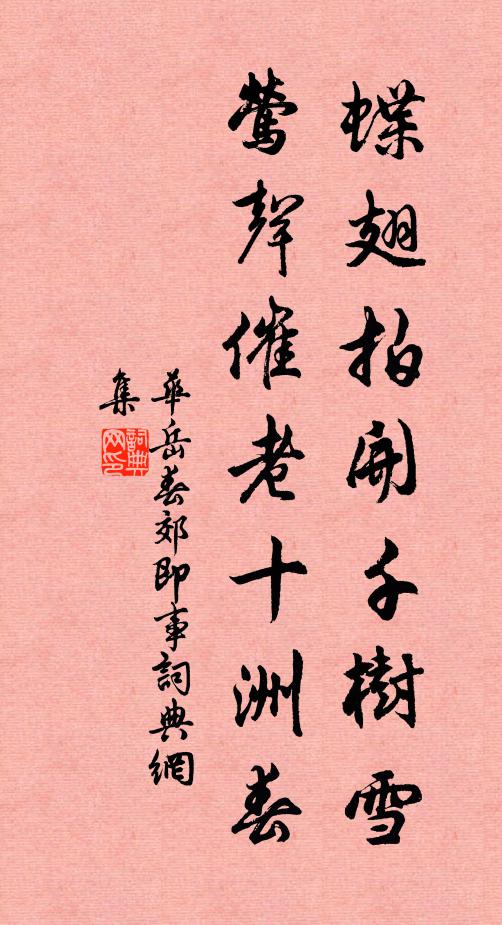 蝶翅拍開千樹雪
鶯聲催老十洲春
華岳春郊即事詞典網
集
詞典
网印